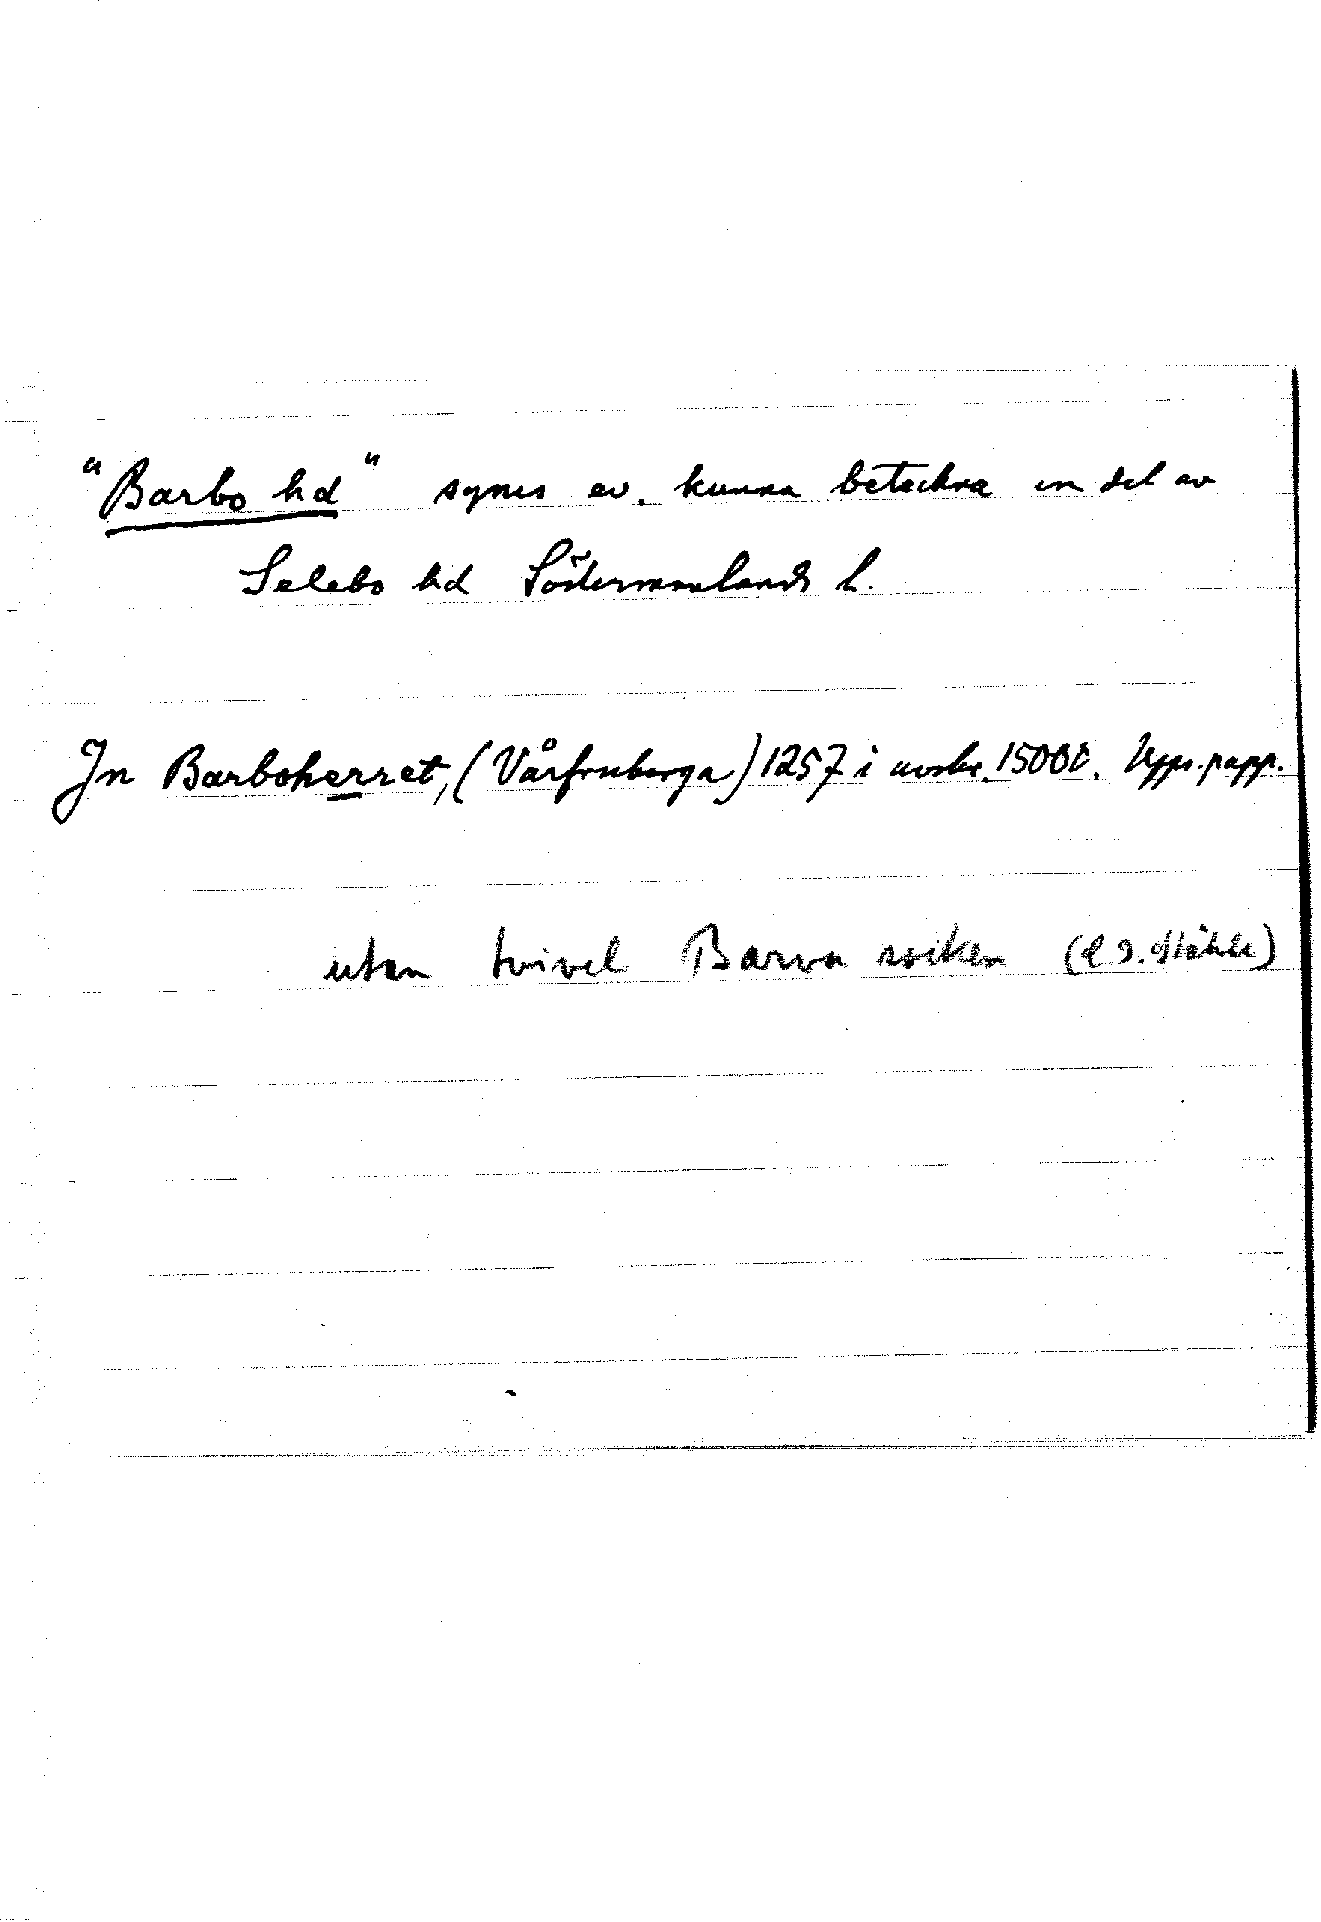 "Barbo hd" synes ev. kunna beteckna en del av
Selebo hd Södermanlands l.
In Barboherret, (Vårfruberga) 1257 i avskr. 1500t. Upps. papp.
utan tvivel Barva socken (C I. Ståhle)